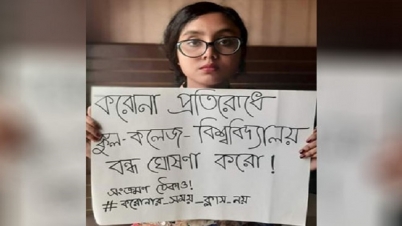 করোনা প্রতিরোধে
স্কুল-কলেজ-বিশ্ববিদ্যালয়
বন্ধ ঘোষণা করো!
সংক্রমণ ঠেকাও!
#করোনার_সময়_ক্লাস_নয়